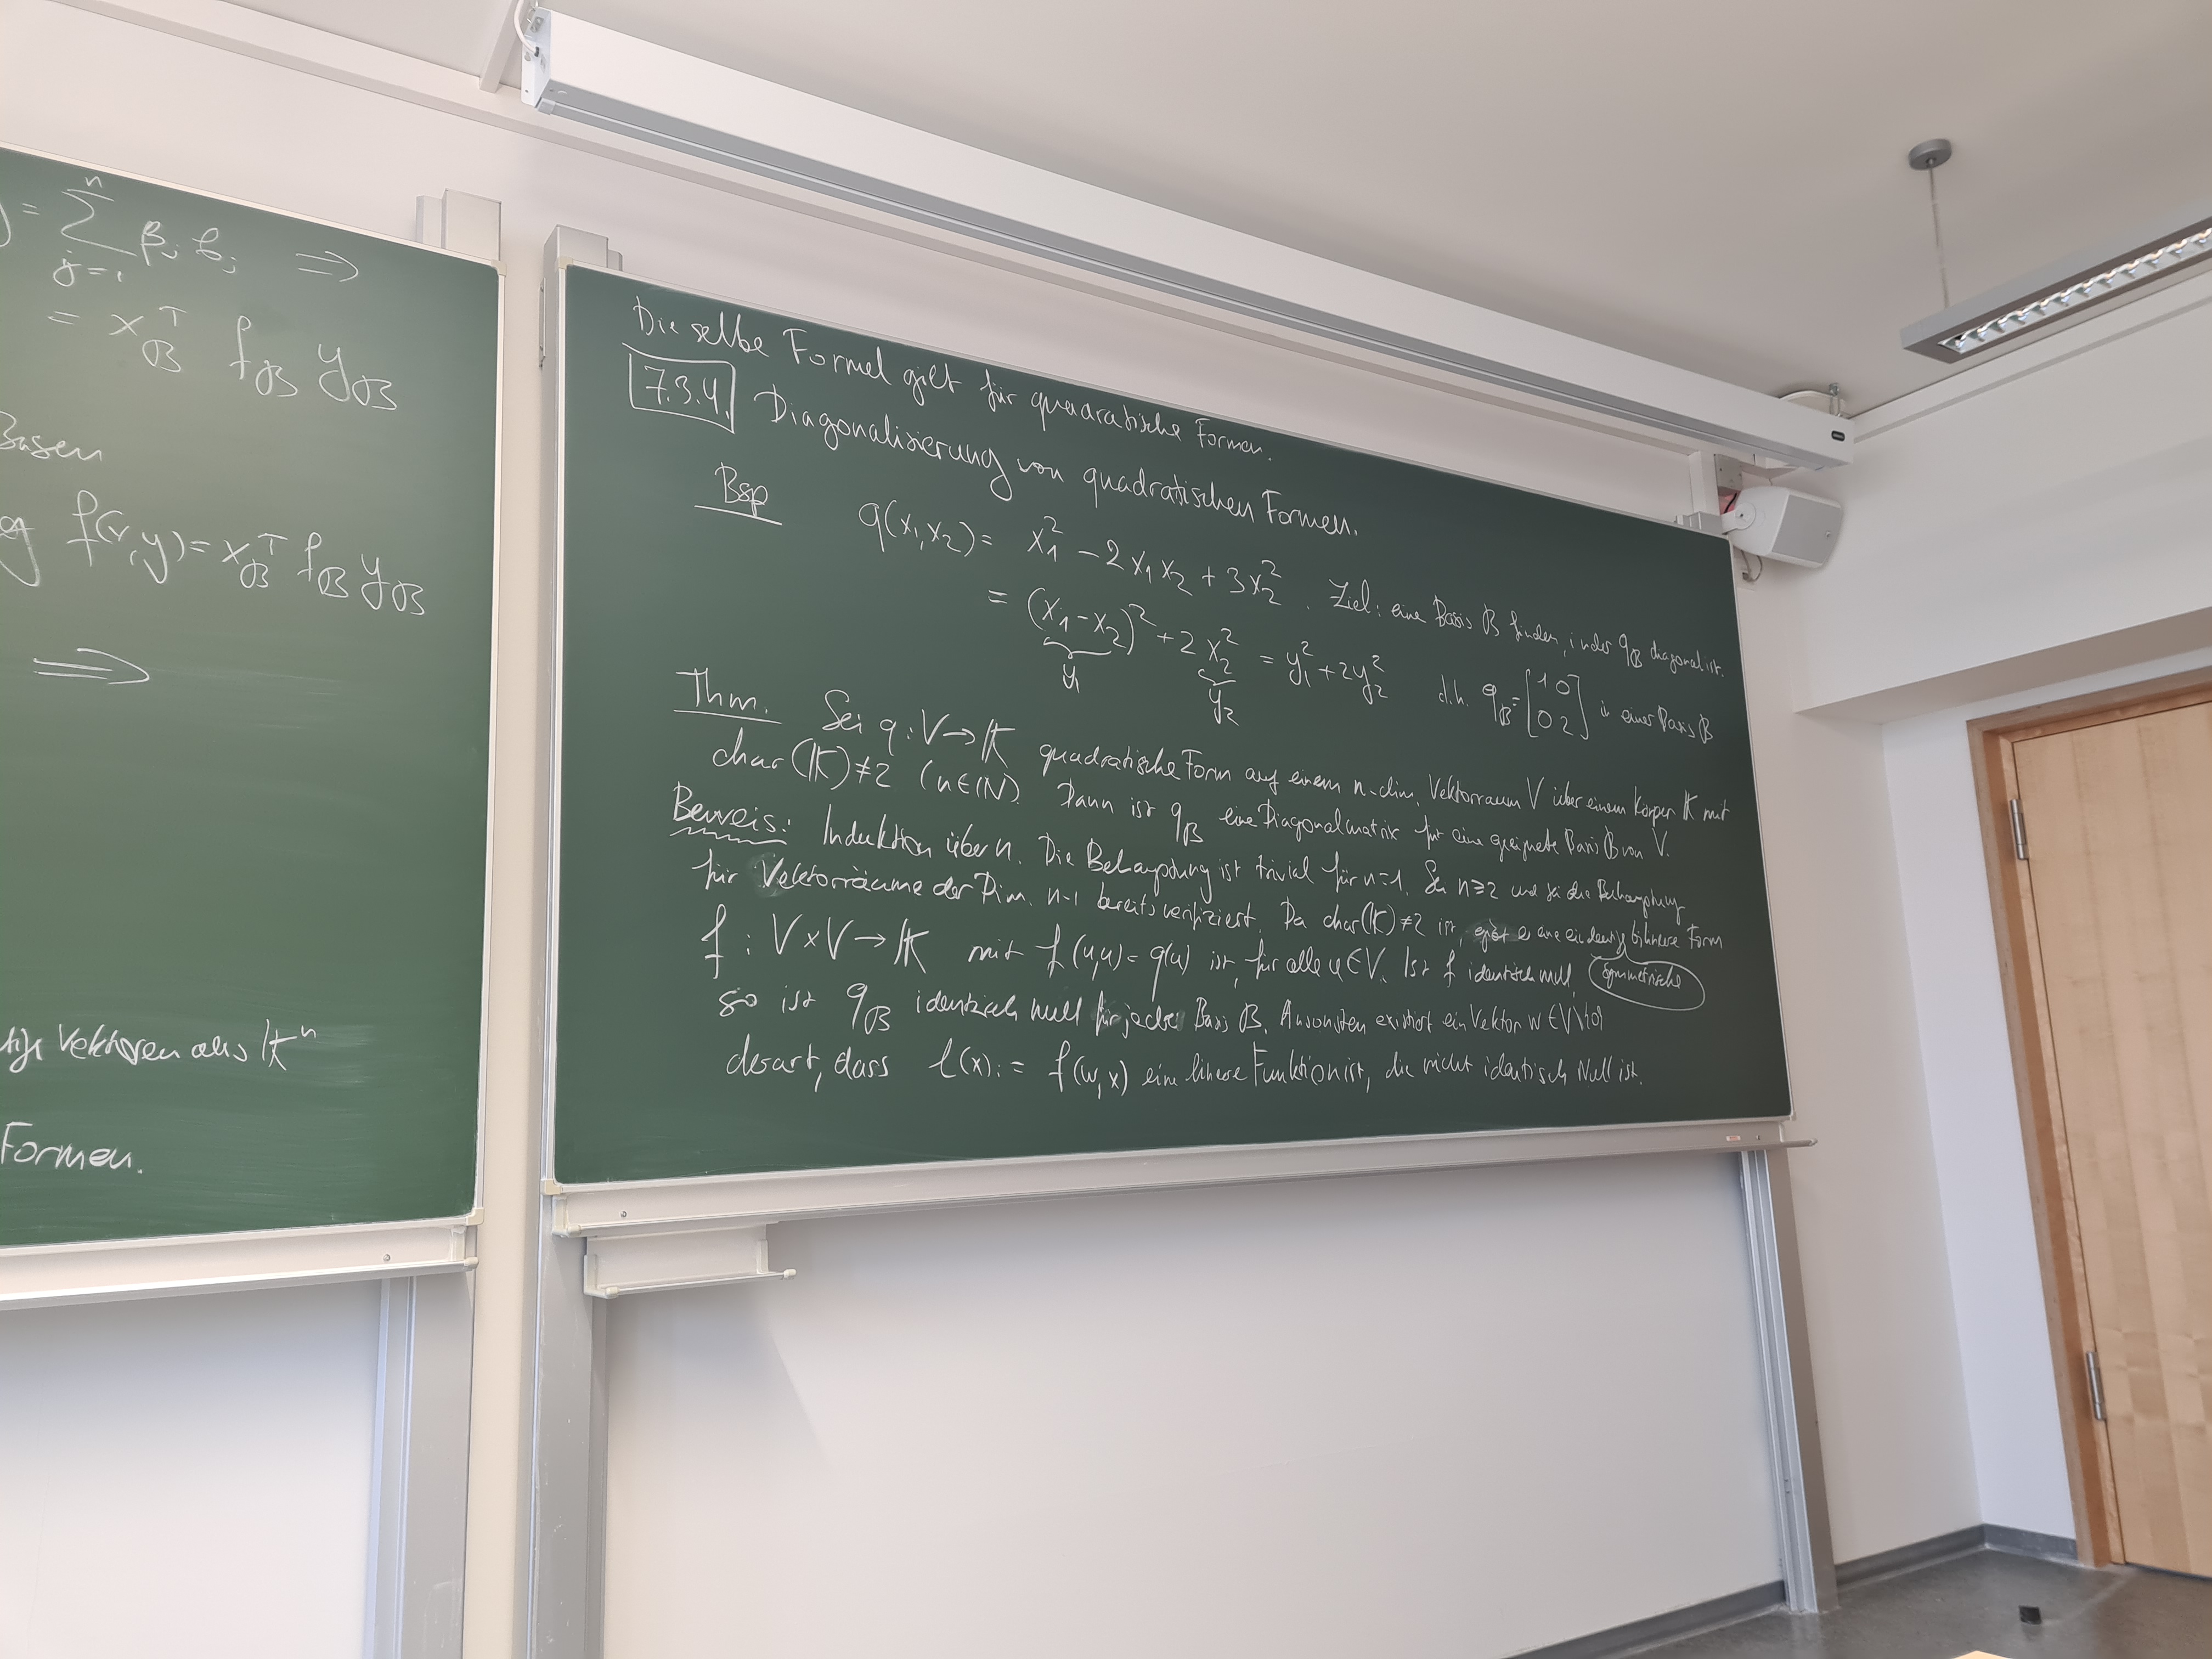 = \sum_{j=1}^{n} β_j b_j ⇒
= x_B^T f_B y_B
Basen
f(x,y) = x_B^T f_B y_B
⇒
Vektoren aus K^n
Formen.
Dieselbe Formel gilt für quadratische Formen.
7.3.4. Diagonalisierung von quadratischen Formen.
Bsp q(x_1,x_2) = x_1^2 - 2x_1x_2 + 3x_2^2. Ziel: eine Basis B finden, in der q_B diagonal ist.
= (x_1-x_2)^2 + 2x_2^2 = y_1^2 + 2y_2^2 d.h. q_B = [1 0
0 2] in einer Basis B
y_1 y_2
Thm. Sei q: V→K quadratische Form auf einem n-dim. Vektorraum V über einem Körper K mit
char(K)≠2 (n∈N). Dann ist q_B eine Diagonalmatrix für eine geeignete Basis B von V.
Beweis: Induktion über n. Die Behauptung ist trivial für n=1. Sei n≥2 und sei die Behauptung
für Vektorräume der Dim. n-1 bereits verifiziert. Da char(K)≠2 ist, gibt es eine eindeutig bilineare Form
symmetrische
f: V×V→K mit f(u,u)=q(u) ist, für alle u∈V. Ist f identisch null,
so ist q_B identisch null für jede Basis B. Ansonsten existiert ein Vektor w∈V\{0}
derart, dass l(x):= f(w,x) eine lineare Funktion ist, die nicht identisch Null ist.